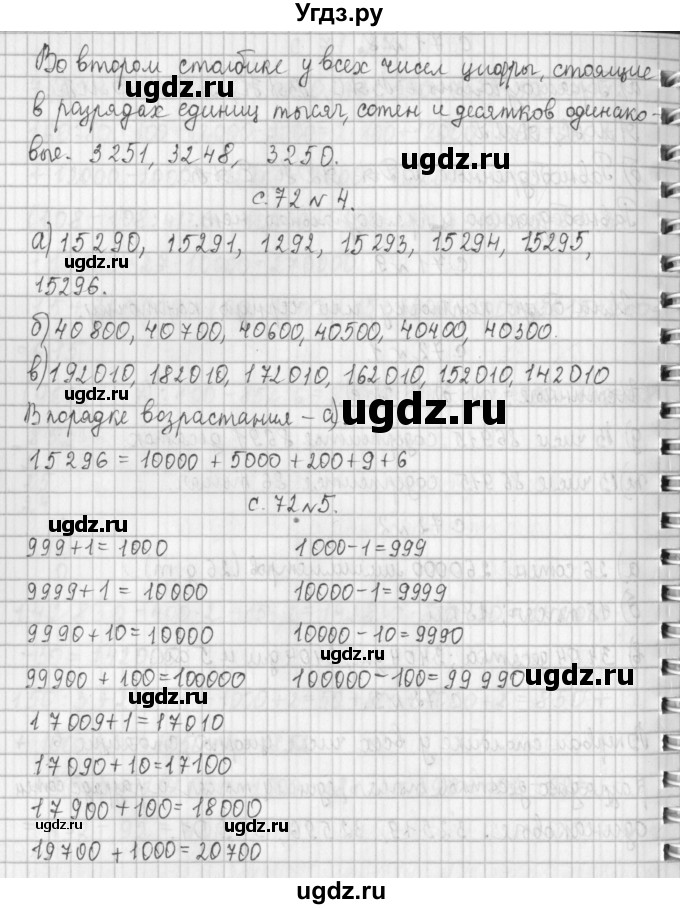 Угдз.ру
Во втором столбике у всех чисел цифры, стоящие
ugdz.ru
в разрядах единиц тысяч, сотен и десятков одинако-
вые. 3251, 3248, 3250.
ugdz.ru
с. 72 № 4.
а) 15290, 15291, 1292, 15293, 15294, 15295,
ugdz.ru
15296.
б) 40800, 40700, 40600, 40500, 40400, 40300.
в) 192010, 182010, 172010, 162010, 152010, 142010
ugdz.ru
В порядке возрастания – а)
ugdz.ru
15296 = 10000 + 5000 + 200 + 9 + 6
с. 72 № 5.
ugdz.ru
999 + 1 = 1000 1000 - 1 = 999
ugdz.ru
9999 + 1 = 10000 10000 - 1 = 9999
9990 + 10 = 10000 10000 - 10 = 9990
ugdz.ru
99900 + 100 = 100000 100000 - 100 = 99990
ugdz.ru
ugdz.ru
17009 + 1 = 17010
17090 + 10 = 17100
ugdz.ru
17900 + 100 = 18000
ugdz.ru
ugdz.ru
19700 + 1000 = 20700
ugdz.ru